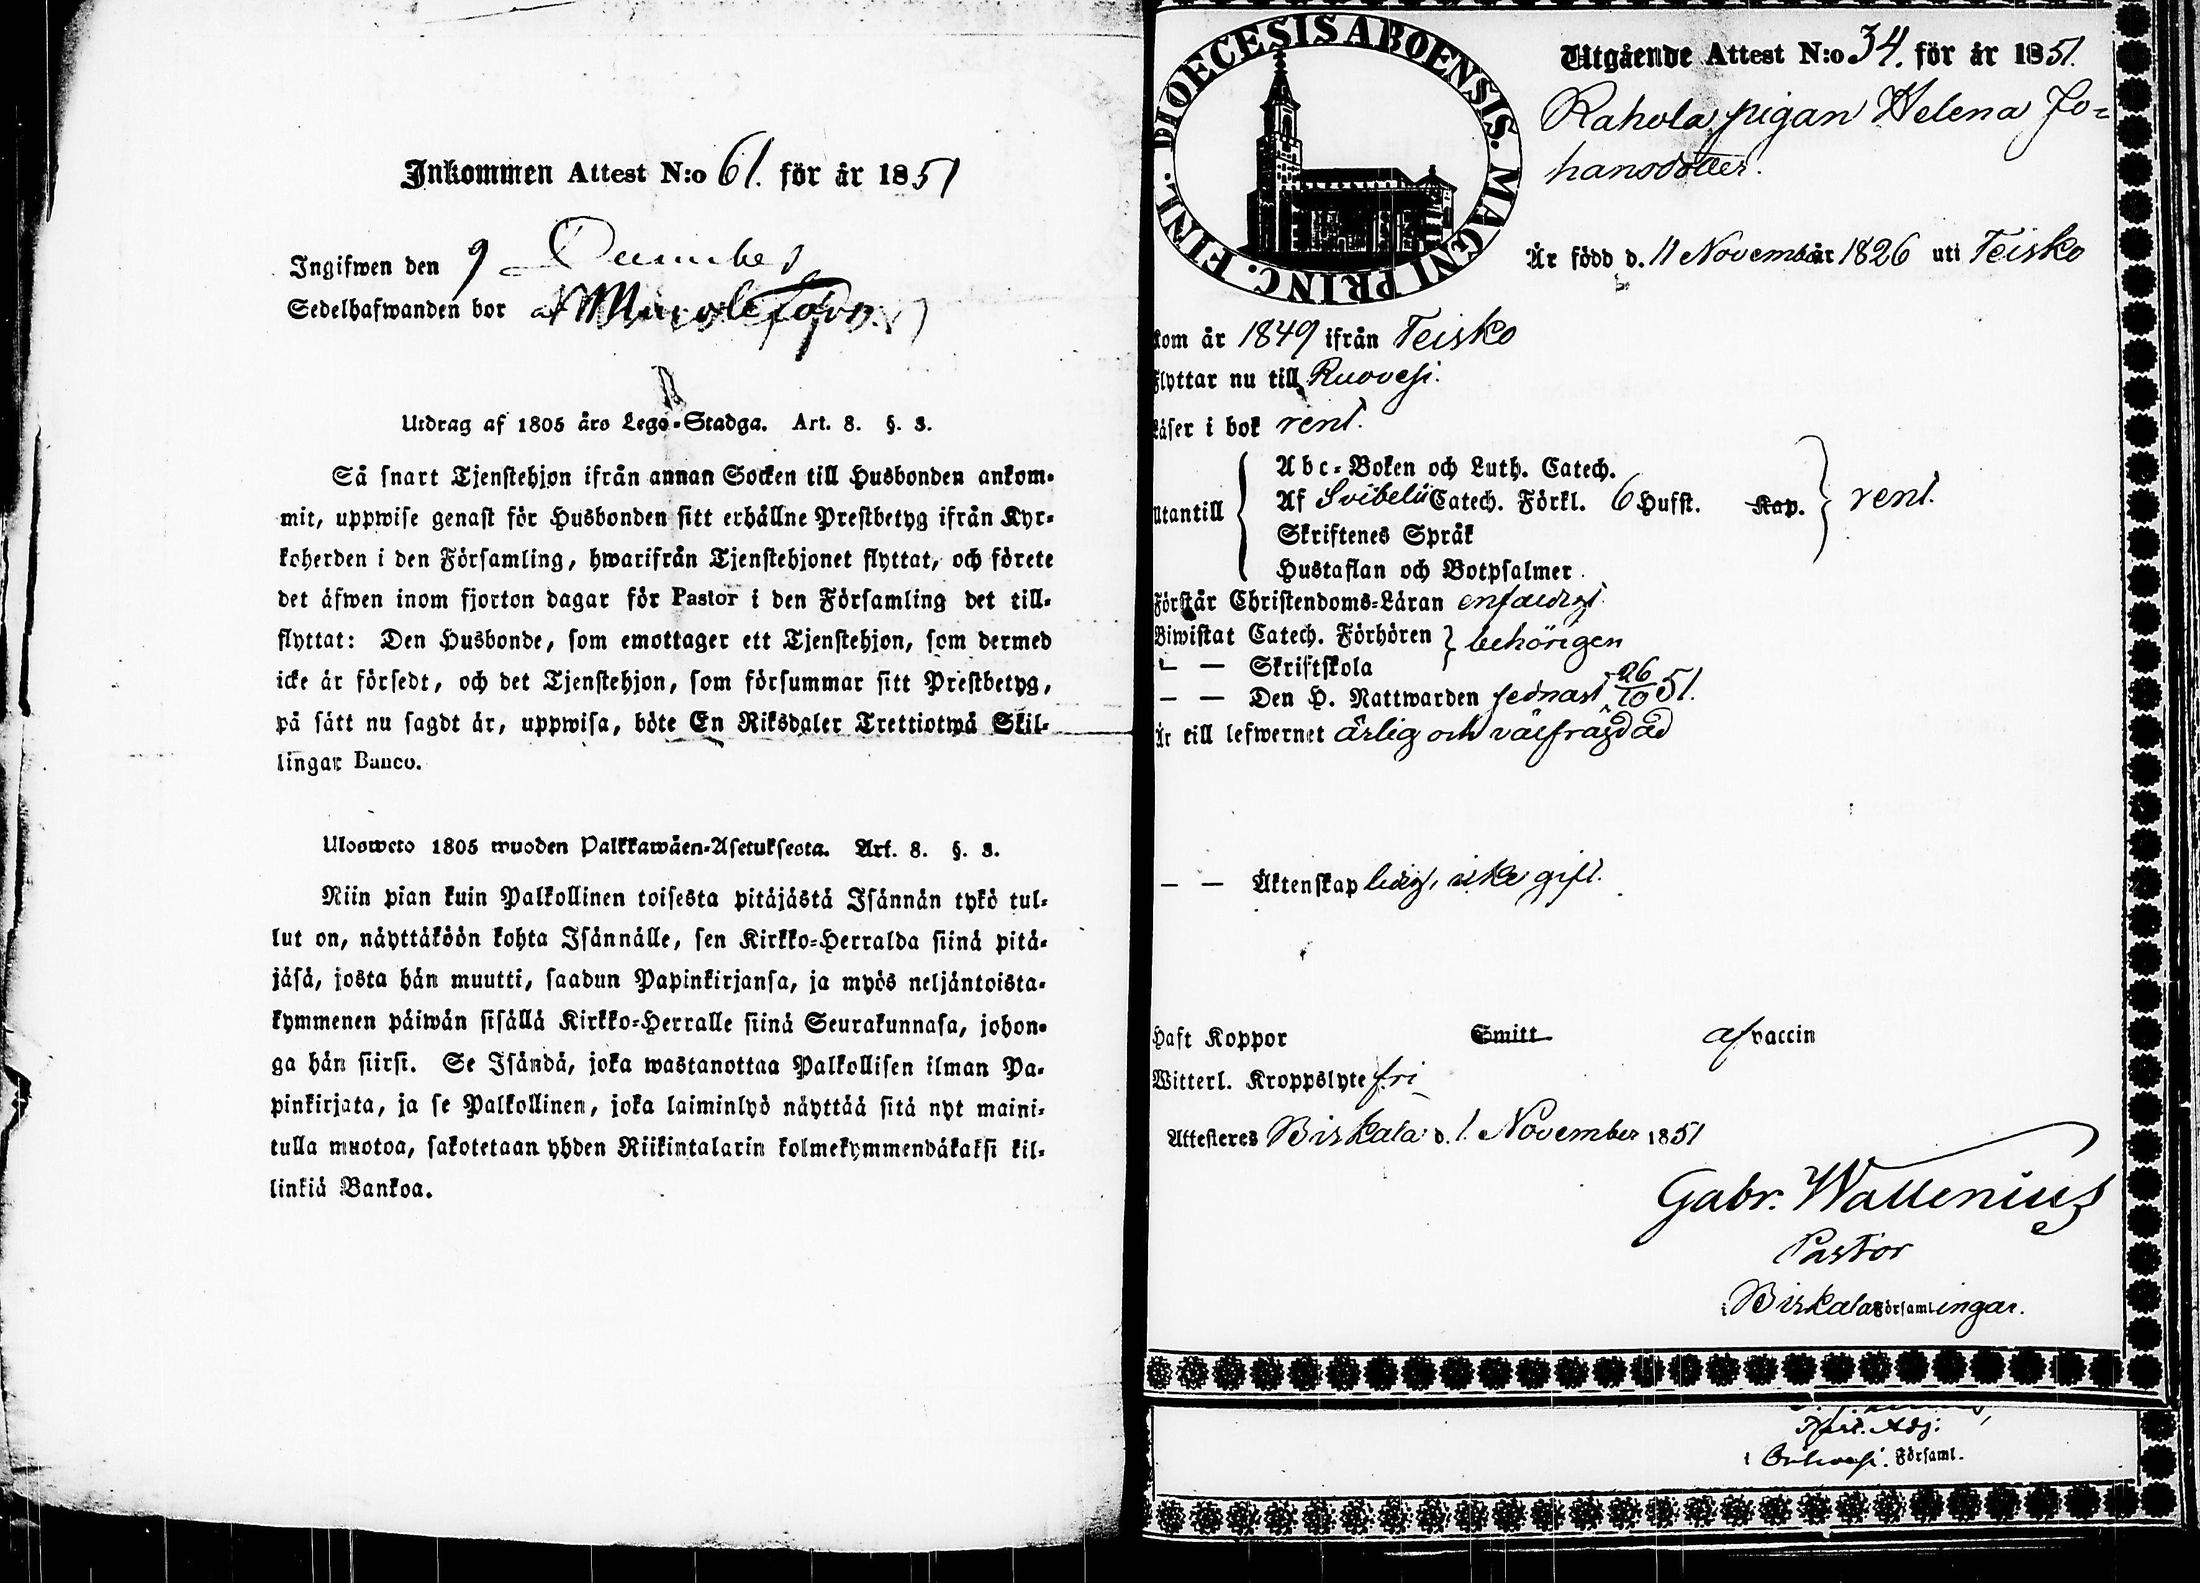 Inkommen Attest N:o 61. för år 1851
Ingifwen den 9 December
Sedelhafwanden bor
Utdrag af 1805 års Lego-Stadga. Art. 8. §. 3.
Så snart Tjenstehjon ifrån annan Socken till Husbonden ankom-
mit, uppwise genast för Husbonden sitt erhållne Prestbetyg ifrån Kyr-
koherden i den Församling, hwarifrån Tjenstehjonet flyttat, och förete
det äfwen inom fjorton dagar för Pastor i den Församling det till-
flyttat: Den Husbonde, som emottager ett Tjenstehjon, som dermed
icke är försedt, och det Tjenstehjon, som försummar sitt Prestbetyg,
på sätt nu sagdt är, uppwisa, böte En Riksdaler Trettiotwå Skil-
lingar Banco.
Ulosweto 1805 wuoden Palkkawäen-Asetuksesta. Art. 8. §. 3.
Niin pian kuin Palkollinen toisesta pitäjästä Isännän tykö tul-
lut on, näyttäköön kohta Isännälle, sen Kirkko-Herralda siinä pitä-
jäsä, josta hän muutti, saadun Papinkirjansa, ja myös neljäntoista-
kymmenen päiwän sisällä Kirkko-Herralle siinä Seurakunnasa, johon-
ga hän siirsi. Se Isändä, joka wastanottaa Palkollisen ilman Pa-
pinkirjata, ja se Palkollinen, joka laiminlyö näyttää sitä nyt maini-
tulla muotoa, sakotetaan yhden Riikintalarin kolmekymmendäkaksi kil-
linkiä Bankoa.
DIOECESIS ABOENSIS. MAGNI PRINC. FINL.
Utgående Attest N:o 34. för år 1851.
Rahola pigan Helena Jo-
hansdotter.
Är född d. 11 November år 1826 uti Teisko
kom år 1849 ifrån Teisko
flyttar nu till Ruovesi.
Läser i bok rent.
Utantill
Abc-Boken och Luth. Catech.
Af Svibelii Catech. Förkl. 6 Hufst. Kap. rent.
Skriftenes Språk
Hustaflan och Botpsalmer
Förstår Christendoms-Läran enfaldigt.
Biwistat Catech. Förhören behörigen
— — Skriftskola
— — Den H. Nattwarden sednast 26/10 51.
Är till lefwernet ärlig och välfrägdad
— — Äktenskap ledig, icke gift.
Haft Koppor Smitt af vaccin
Witterl. Kroppslyte fri
Attesteres Birkala d. 1. November 1851
Gabr. Wallenius
Pastor
i Birkala Församlingar.
Adj.
i Församl.